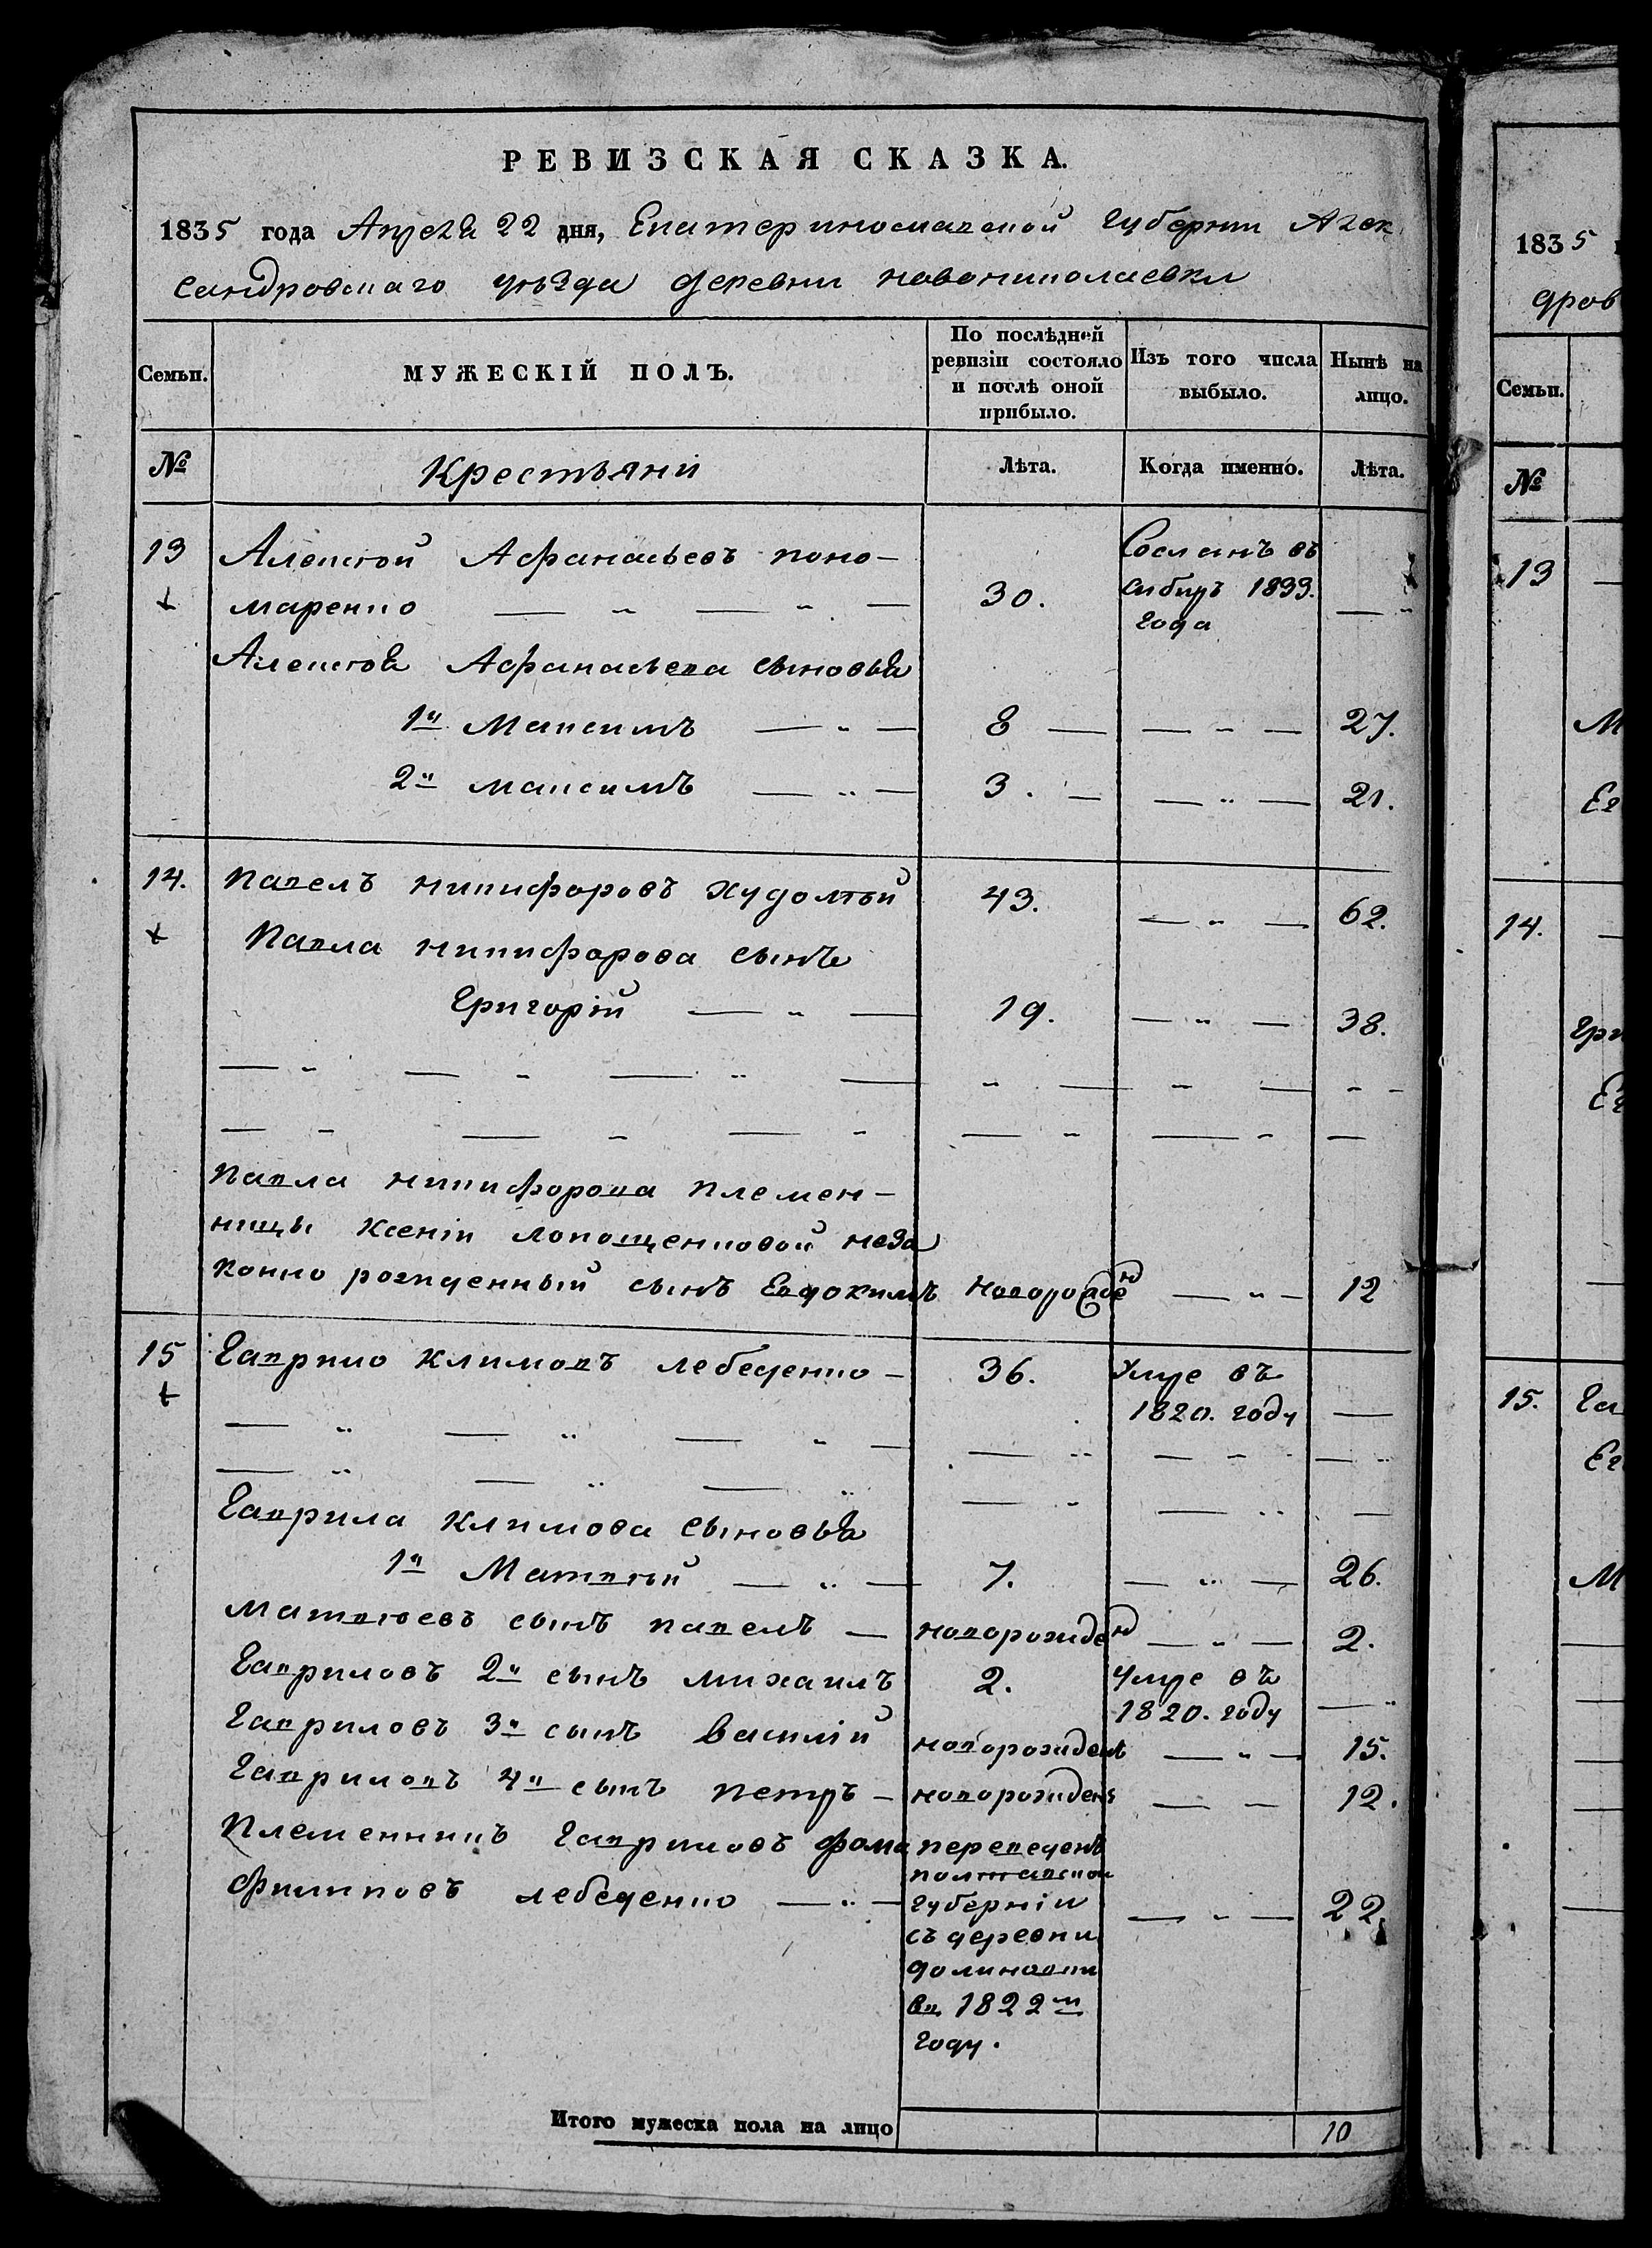 РЕВИЗСКАЯ СКАЗКА.
1835 года Апреля 22 дня, Екатеринославской Губернии Алек
сандровского уѣзда деревни новониколаевки
Семьи.
МУЖЕСКІЙ ПОЛЪ.
По послѣдней
ревизіи состояло
и послѣ оной
прибыло.
Изъ того числа
выбыло.
Нынѣ на
лицо.
№
Крестьяни
Лѣта.
Когда именно.
Лѣта.
13 Алексей Афанасьевъ поно-
маренко 30. Сосланъ въ
сибирь 1833.
года
Алексея Афанасьева сыновья
1й Максимъ 8 27.
2й максимъ 3. 21.
14. павелъ никифоровъ худолѣй 43. 62.
Павла никифорова сынъ
Григорій 19. 38.
павла никифорова племен-
ницы Ксеніи лопощенковой неза
конно рожденный сынъ Евдокимъ новорожден 12
15 Гаврило климовъ лебеденко - 36. Умре въ
1820. году
Гаврила климова сыновья
1й Матвей 7. 26.
матвеевъ сынъ павелъ новорожден 2.
Гавриловъ 2й сынъ михаилъ 2. умре въ
1820. году
Гавриловъ 3й сынъ василий новорожденъ 15.
Гавриловъ 4й сынъ петръ - новорожденъ 12.
племенникъ Гавриловъ фома
филиповъ лебеденко 22.
переведенъ
полтавской
губерніи
съ деревни
долиновки
въ 1822м
году.
Итого мужеска пола на лицо 10
1835
дров
Семьи.
№
13
М
Ег
14.
Гри
Ег
15. Га
Ег
М